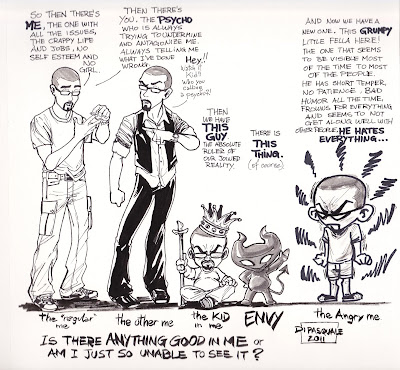 SO THEN THERE'S
ME, THE ONE WITH
ALL THE ISSUES,
THE CRAPPY LIFE
AND JOBS, NO
SELF ESTEEM AND
NO
GIRL.
THEN THERE'S
YOU. THE PSYCHO
WHO IS ALWAYS
TRYING TO UNDERMINE
AND ANTAGONIZE ME.
ALWAYS TELLING ME
WHAT I'VE DONE
WRONG.
Hey!!
Kid?
Who you
calling
a psycho?!
THEN
WE HAVE
THIS
GUY
THE ABSOLUTE
RULER OF
OUR JOINED
REALITY.
THERE IS
THIS
THING.
(of course)
AND NOW WE HAVE A
NEW ONE. THIS GRUMPY
LITTLE FELLA HERE!
THE ONE THAT SEEMS
TO BE VISIBLE MOST
OF THE TIME TO MOST
OF THE PEOPLE.
HE HAS SHORT TEMPER,
NO PATIENCE. BAD
HUMOR ALL THE TIME,
FROWNS FOR EVERYTHING
AND SEEMS TO NOT
GET ALONG WELL WITH
OTHER PEOPLE. HE HATES
EVERYTHING...
the "regular" me
the other me
the KID in me
ENVY
the Angry me
DIPASQUALE
2011
IS THERE ANYTHING GOOD IN ME OR
AM I JUST SO UNABLE TO SEE IT?